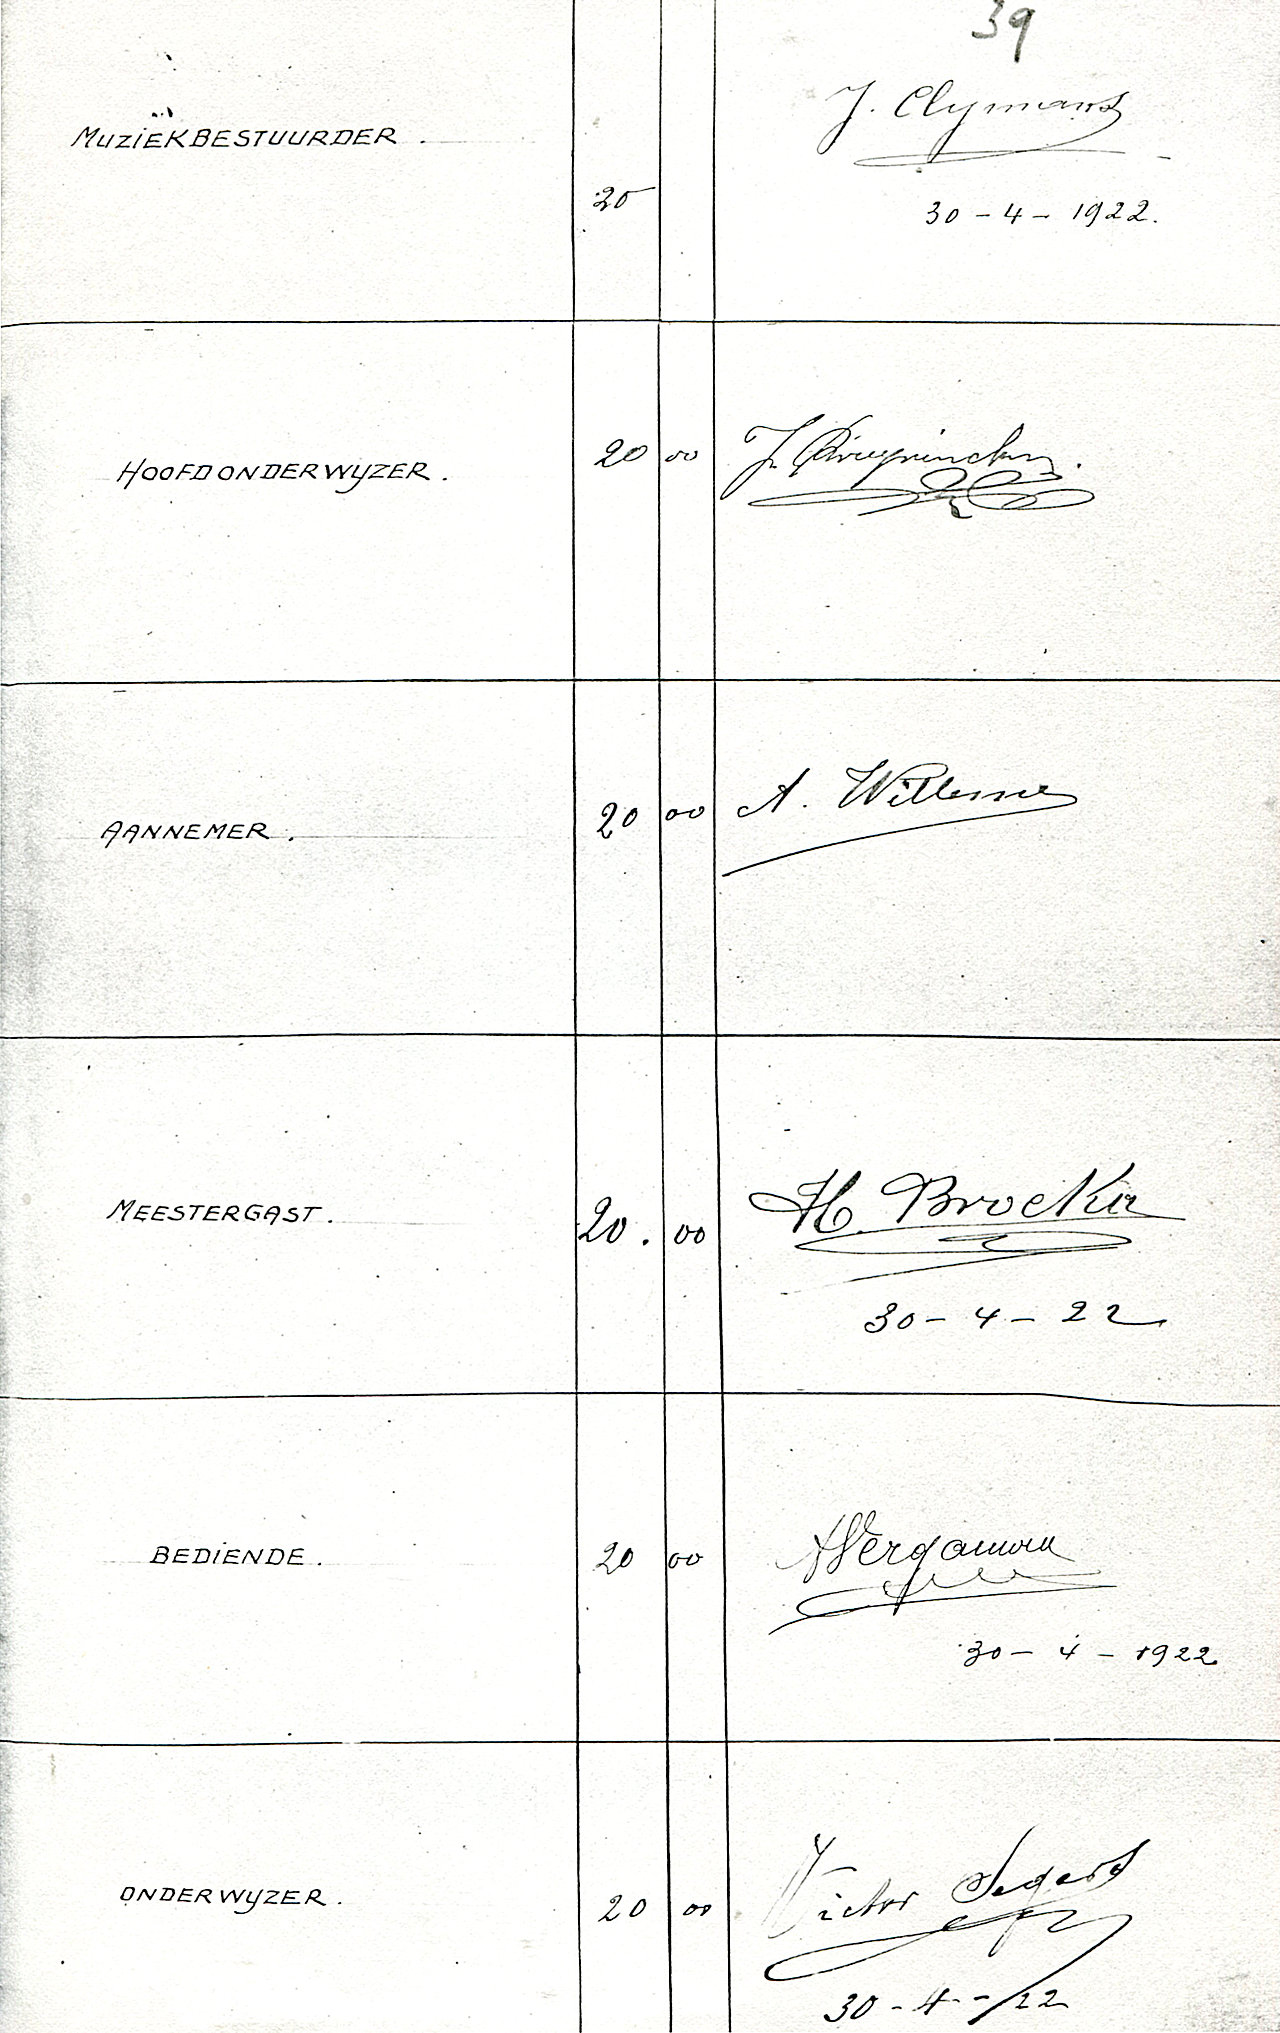 39
MUZIEKBESTUURDER.
20
J. Clymans
30 - 4 - 1922.
HOOFDONDERWIJZER.
20 00
J.
AANNEMER.
20 00
A. Willems
MEESTERGAST.
20. 00
H. Brockx
30 - 4 - 22
BEDIENDE.
20 00
30 - 4 - 1922
ONDERWIJZER.
20 00
Victor Segers
30 - 4 - 22